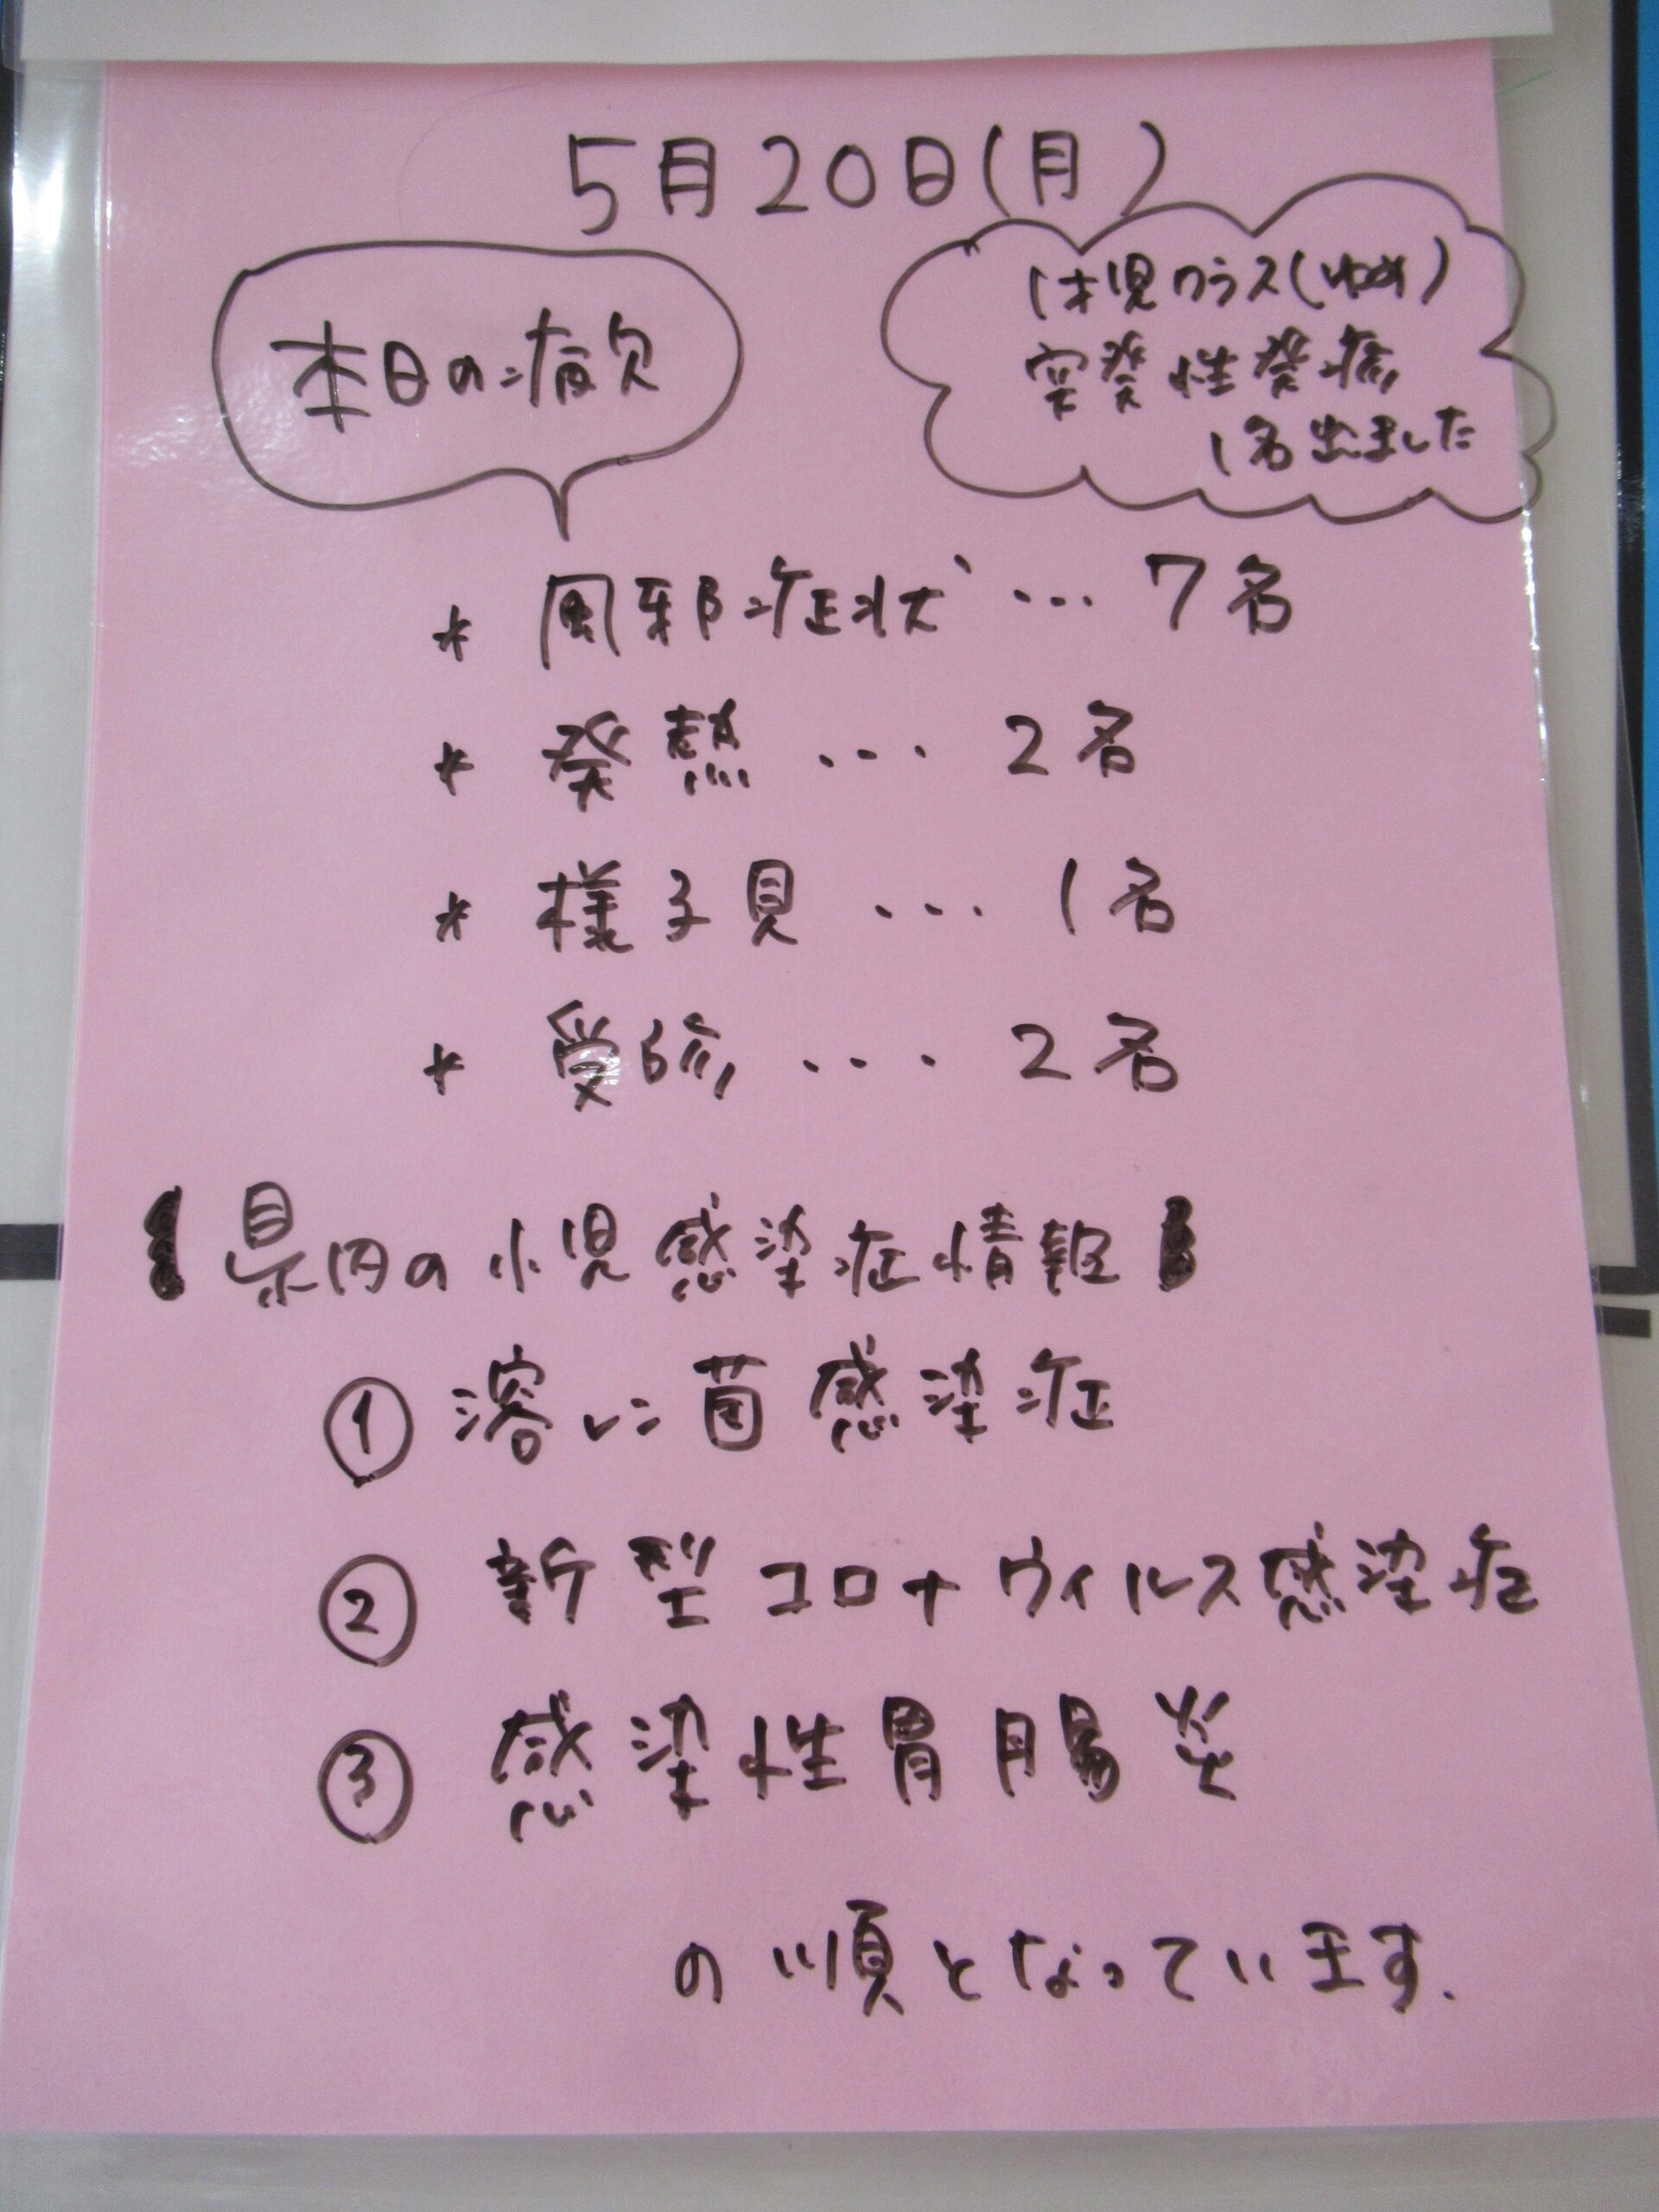 5月20日(月)
本日の病欠
1才児クラス(ゆめ)
突発性発疹
1名出ました
* 風邪症状 … 7名
* 発熱 … 2名
* 様子見 … 1名
* 受診 … 2名
県内の小児感染症情報
① 溶レン菌感染症
② 新型コロナウィルス感染症
③ 感染性胃腸炎
の順となっています.